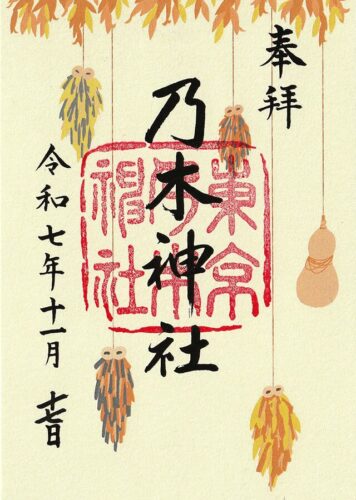 奉拝
乃木神社
東京乃木神社
令和七年十一月十七日